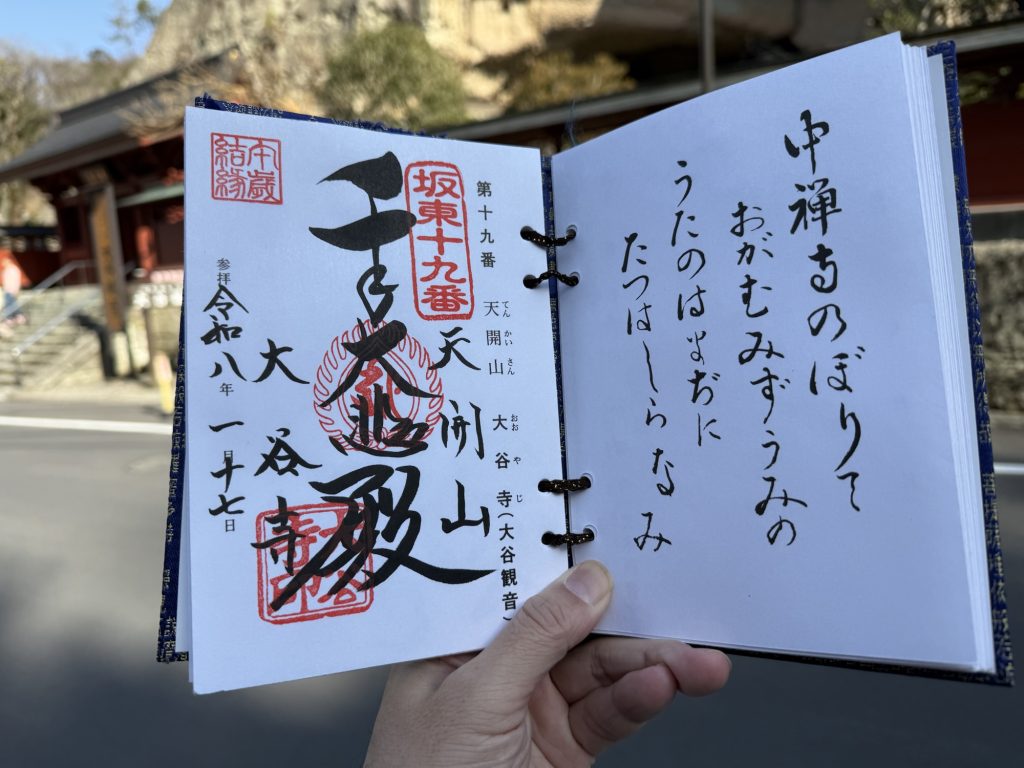 中禅寺のぼりて
おがむみずうみの
うたのはまぢに
たつはしらなみ
第十九番 天開山 大谷寺(大谷観音)
てんかいさん おおやじ
坂東十九番
天開山
千手大悲殿
大谷寺
参拝 令和八年一月十七日
午歳
結縁